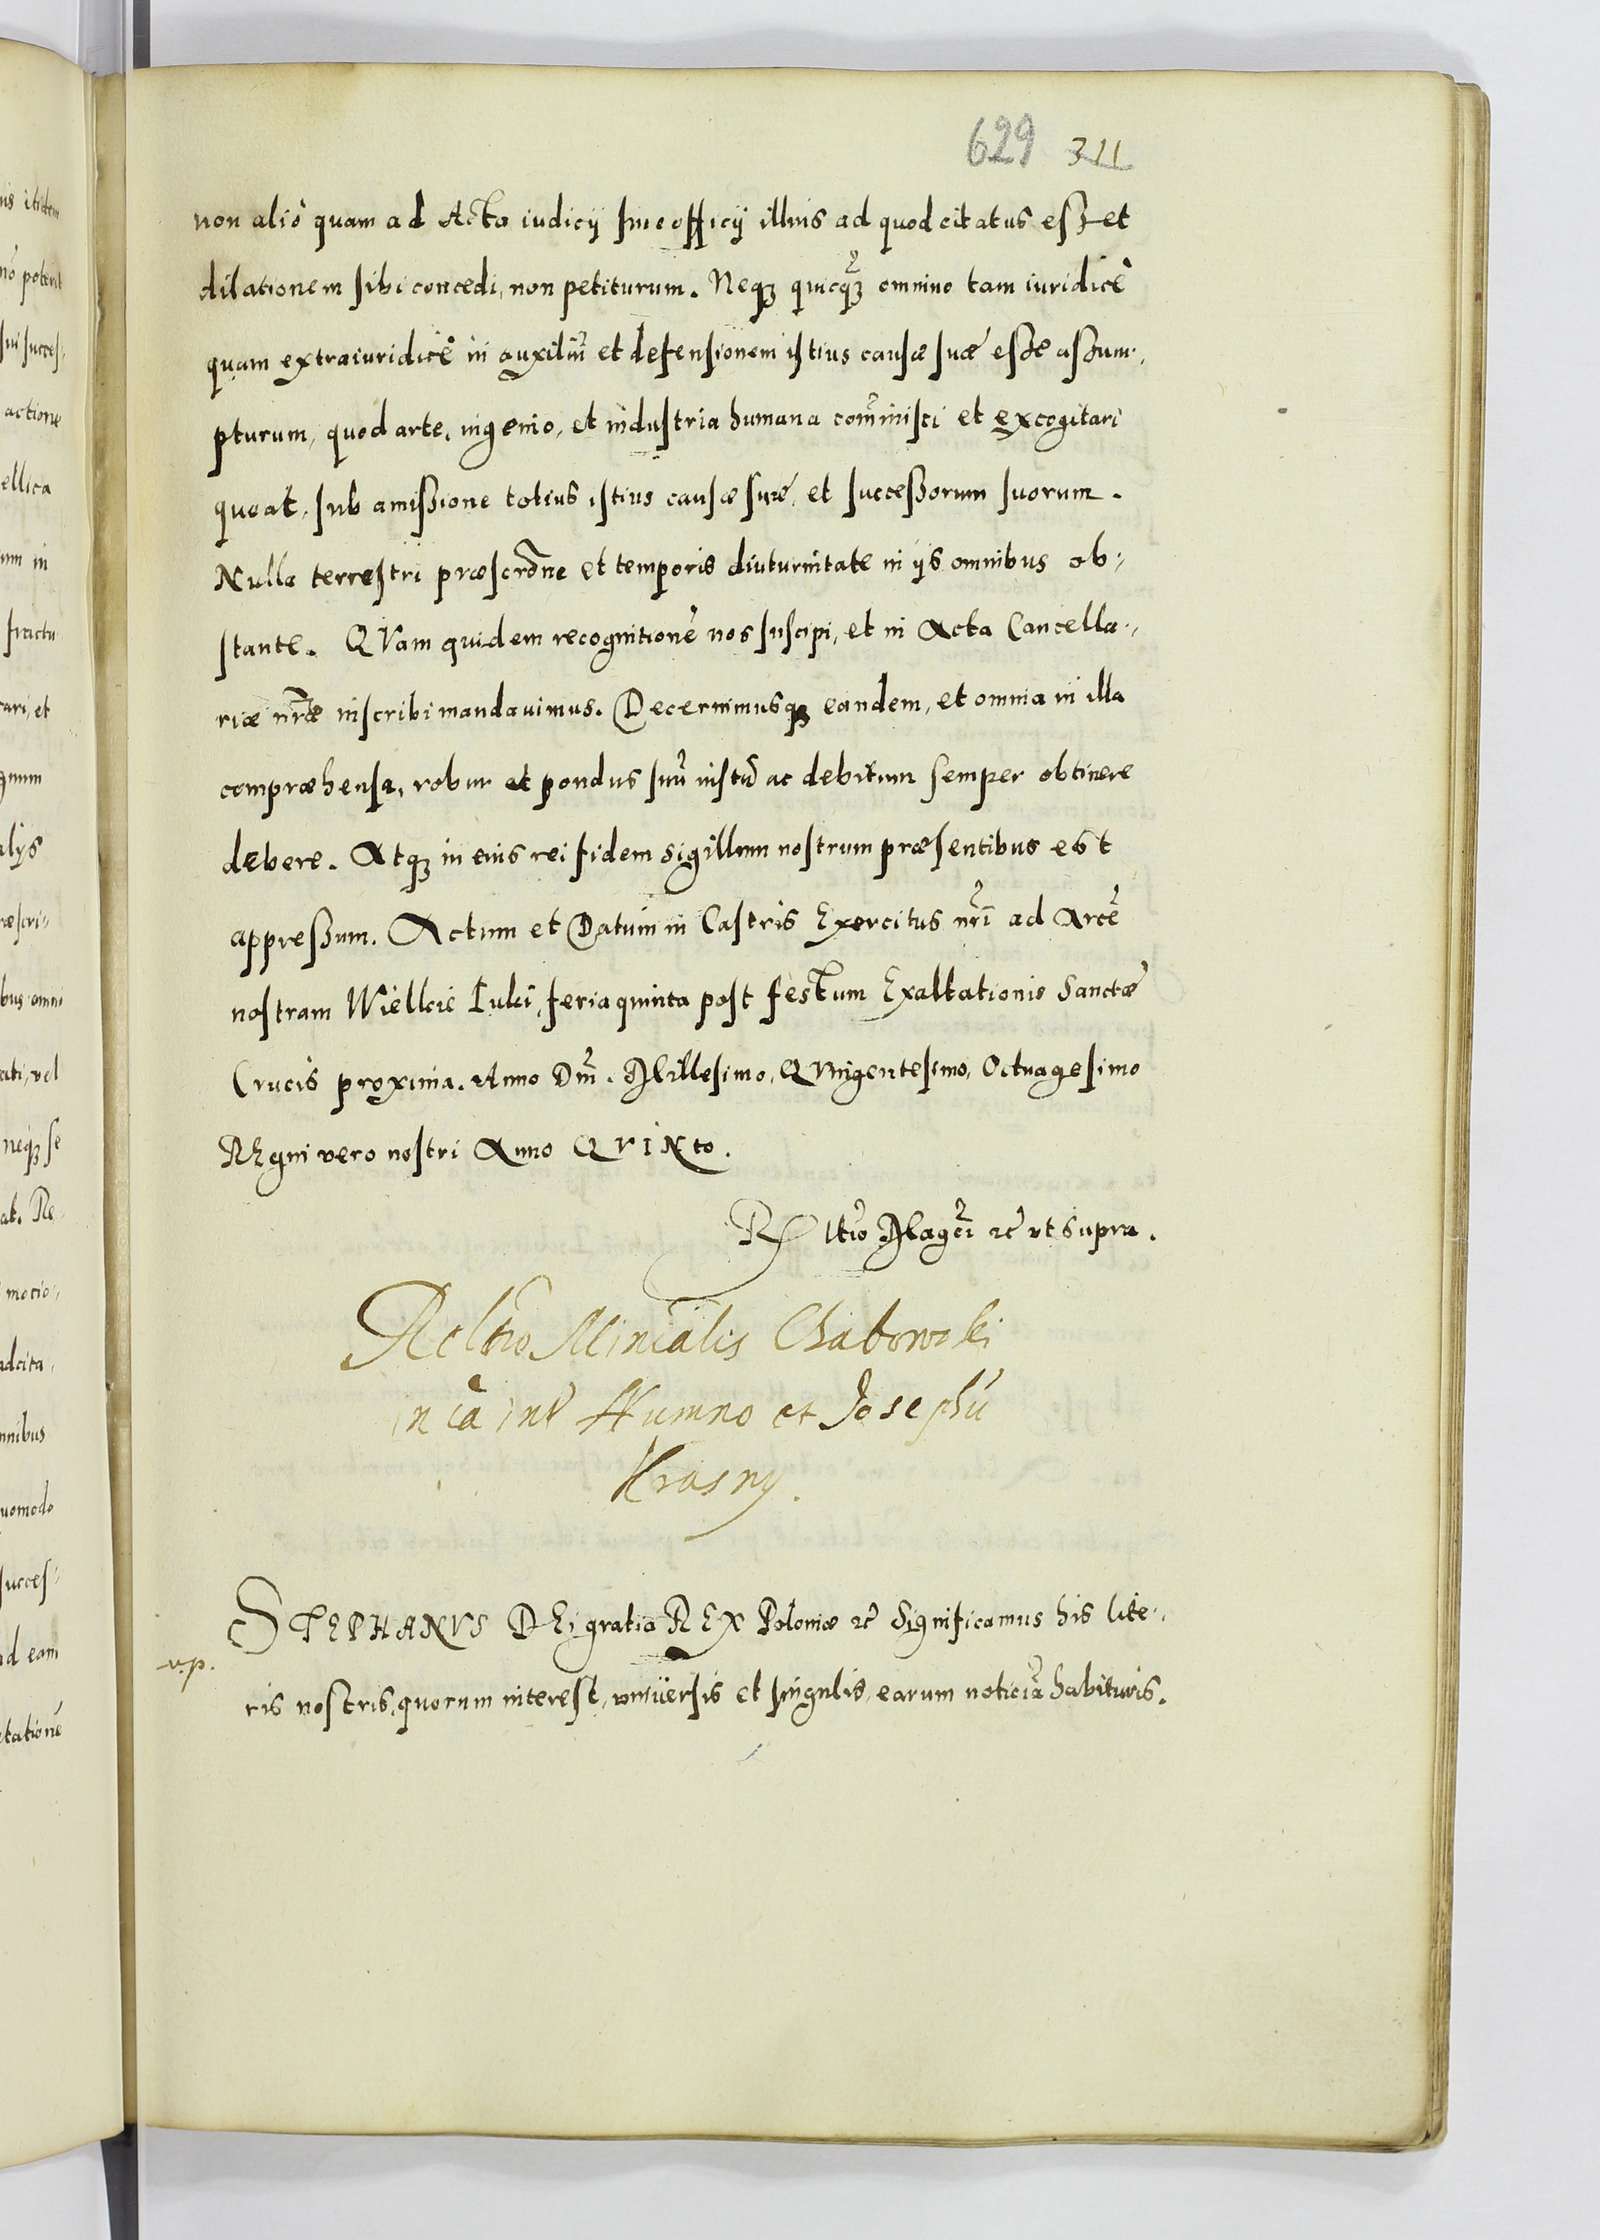 629 311
non aliò quam ad Acta iudicij siue officij illius ad quod citatus esset
dilationem sibi concedi, non petiturum. Neqꝫ quicqꝫ omnino tam iuridicè
quam extraiuridicè in auxiliũ et defensionem istius causæ suæ esse assum-
pturum, quod arte, ingenio, et industria humana com̃inisci et excogitari
queat, sub amissione totius istius causæ suæ, et successorum suorum.
Nulla terrestri præscrõne et temporis diuturnitate in ijs omnibus ob-
stante. QVam quidem recognitionẽ nos suscipi, et in Acta Cancella-
riæ nrãe inscribi mandauimus. Decernimusqꝫ eandem, et omnia in illa
compræhensa, robur et pondus suũ iustũ ac debitum semper obtinere
debere. Atqꝫ in eius rei fidem sigillum nostrum præsentibus est
appressum. Actum et Datum in Castris Exercitus nrĩ ad Arcẽ
nostram Wielkie Luki, feria quinta post festum Exaltationis Sanctæ
Crucis proxima. Anno Dnĩ. Millesimo, QVingentesimo, Octuagesimo
REgni vero nostri Anno QVINto.
R ltio Magci ꝛc̃ vt supra.
Reltio Minialis Chabowski
in cã int Humno et Josephũ
Krasny.
STEPHANVS DEi gratia REX Poloniæ ꝛc̃ Significamus his lite-
v.p.
ris nostris, quorum interest, vniuersis et singulis, earum noticiã habituris.